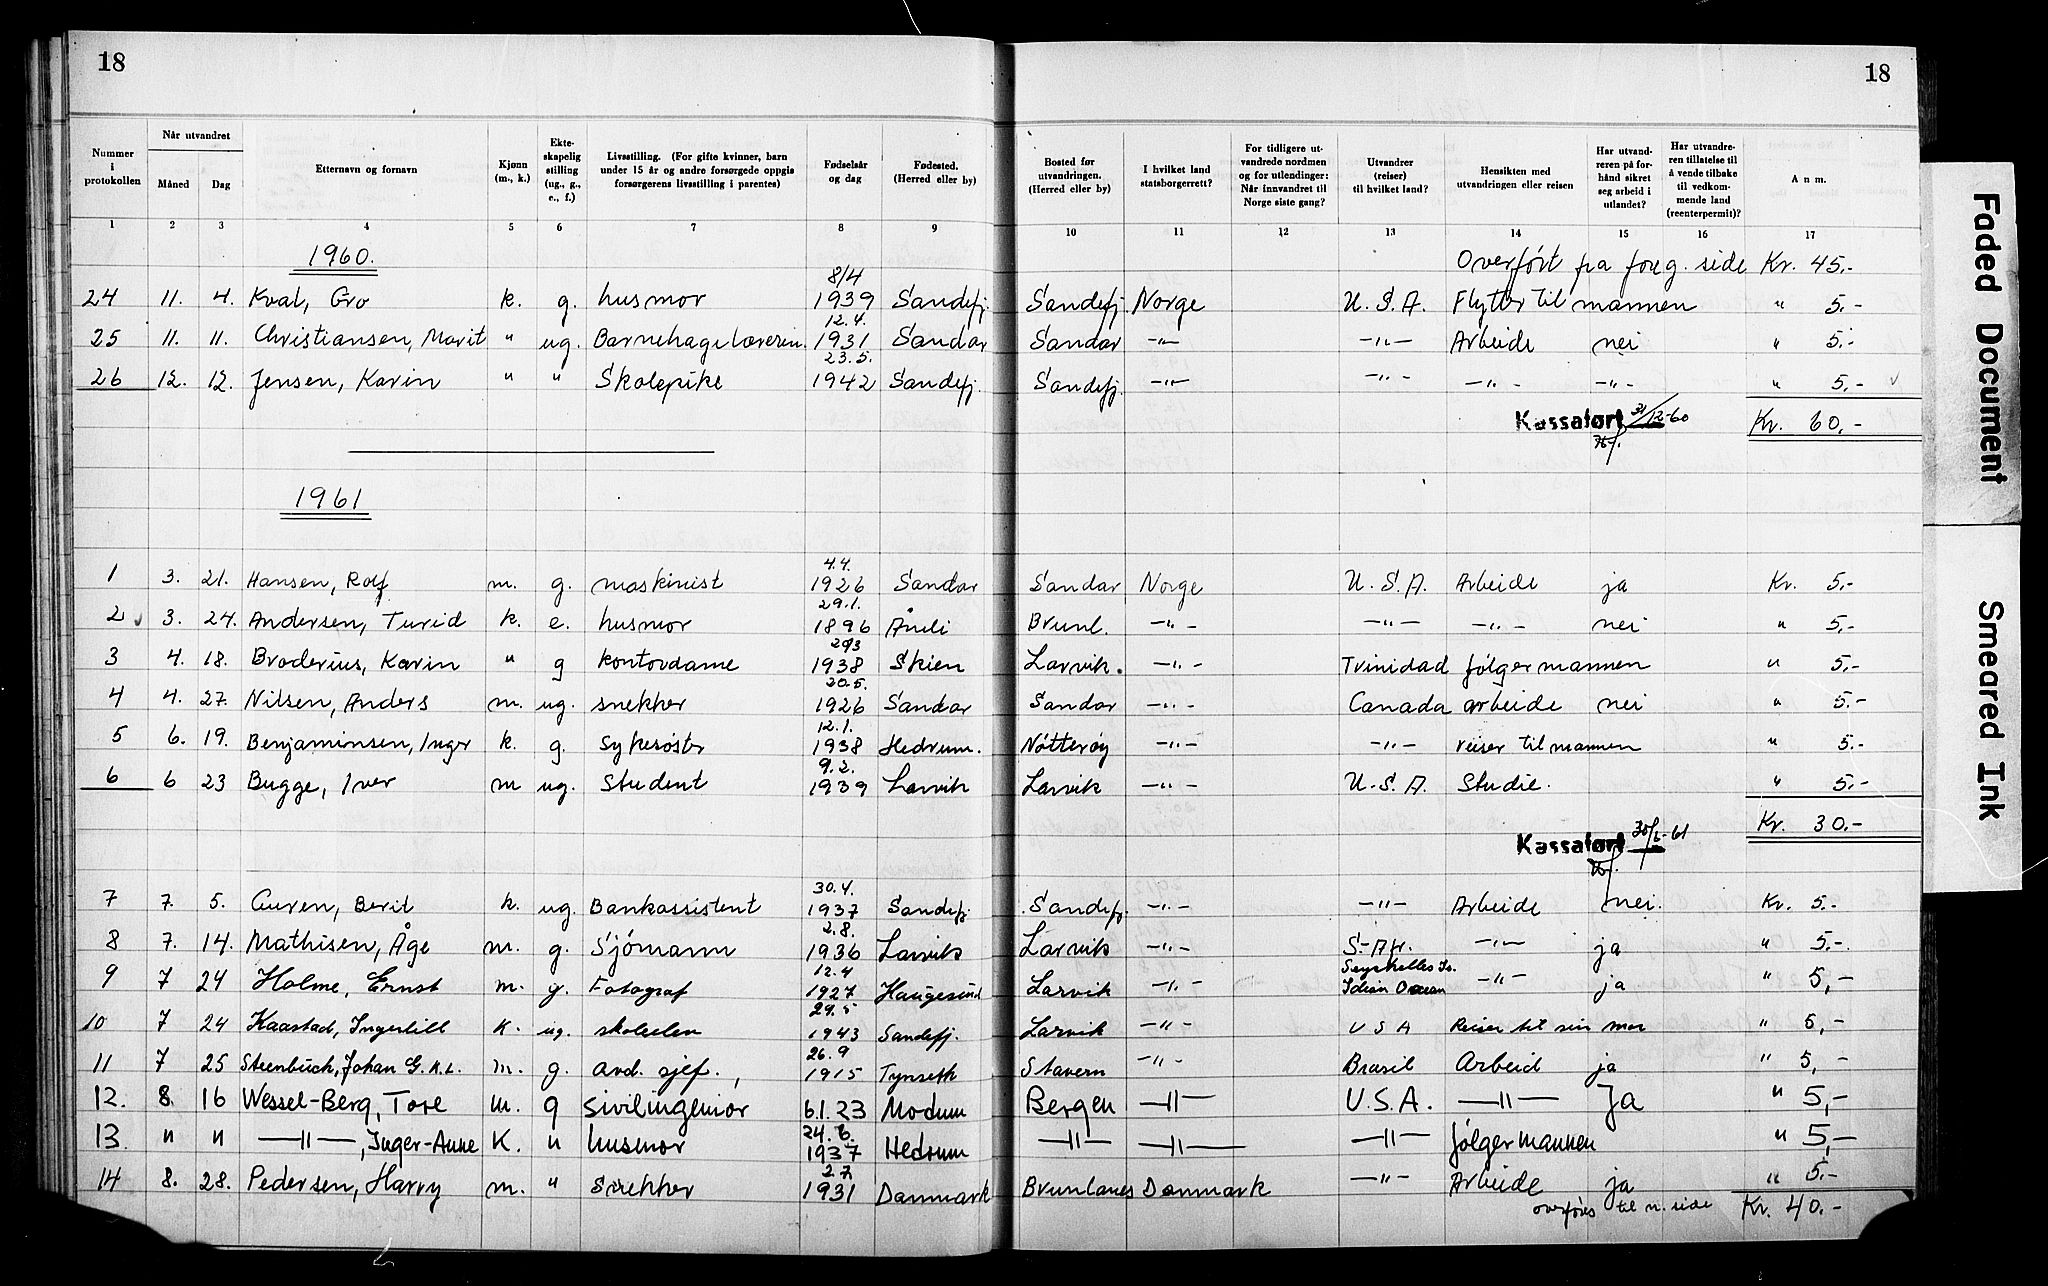 18
18
Nummer i protokollen
Når utvandret
Måned
Dag
Etternavn og fornavn
Kjønn (m., k.)
Ekteskapelig stilling (ug., g., e., f.)
Livsstilling. (For gifte kvinner, barn under 15 år og andre forsørgede oppgis forsørgerens livsstilling i parentes)
Fødselsår og dag
Fødested. (Herred eller by)
Bosted før utvandringen. (Herred eller by)
I hvilket land statsborgerrett?
For tidligere utvandrede nordmen og for utlendinger: Når innvandret til Norge siste gang?
Utvandrer (reiser) til hvilket land?
Hensikten med utvandringen eller reisen
Har utvandreren på forhånd sikret seg arbeid i utlandet?
Har utvandreren tillatelse til å vende tilbake til vedkommende land (reenterpermit)?
Anm.
1 2 3 4 5 6 7 8 9 10 11 12 13 14 15 16 17
1960.
Overført fra foreg. side Kr. 45,-
24 11. 4. Kval, Gro k. g. husmor 8/4 1939 Sandefj. Sandefj. Norge U.S.A. Flytter til mannen " 5,-
25 11. 11. Christiansen, Marit " ug. Barnehagelærerin. 12.4. 1931 Sandar Sandar -"- -"- Arbeide nei " 5,-
26 12. 12. Jensen, Karin " " Skolepike 23.5. 1942 Sandefj. Sandefj. -"- -"- -"- -"- " 5,-
Kassaført 31/12-60 Kr. 60,-
1961
1 3. 21. Hansen, Rolf m. g. maskinist 4.4. 1926 Sandar Sandar Norge U.S.A. Arbeide ja Kr. 5,-
2 3. 24. Andersen, Turid k. e. husmor 29.1. 1896 Åmli Brunl. -"- -"- -"- nei " 5,-
3 4. 18. Broderius, Karin " g kontordame 29/3 1938 Skien Larvik. -"- Trinidad følger mannen " 5,-
4 4. 27. Nilsen, Anders m. ug. snekker 20.5. 1926 Sandar Sandar -"- Canada arbeide nei " 5.-
5 6. 19. Benjaminsen, Inger k. g. Sykesøster 12.1. 1938 Hedrum. Nøtterøy -"- -"- reiser til mannen " 5.-
6 6 23 Bugge, Iver m ug. Student 9.2. 1939 Larvik Larvik -"- U.S.A. Studie. " 5,-
Kr. 30,-
Kassaført 30/6-61
7 7. 5. Auren, Berit k. ug. Bankassistent 30.4. 1937 Sandefj. Sandefj. -"- -"- Arbeide nei. Kr. 5.-
8 7. 14. Mathisen, Åge m. g. Sjömann 2.8. 1936 Larvik Larvik -"- S-Afr. -"- ja " 5,-
9 7 24 Holme, Ernst m. g. Fotograf 12.4 1927 Haugesund Larvik -"- Seyschelles Is. Idian Ocean -"- ja " 5,-
10 7 24 Kaastad, Ingerlill k. ug. skoleelev 29.5 1943 Sandefj. Larvik -"- USA Reiser til sin mor " 5,-
11 7 25 Steenbuch, Johan G.K.L. m. g. avd. sjef., 26.9 1915 Tynseth Stavern -"- Brasil Arbeid ja " 5,-
12. 8. 16 Wessel-Berg, Tore m. g sivilingeniør 6.1.23 Modum Bergen -"- U.S.A. -"- Ja " 5,-
13. " " -"-, Inger-Anne K. " husmor 24.6. 1937 Hedrum -"- -"- -"- følger mannen " 5,-
14 8. 28. Pedersen, Harry m. " Snekker 2.7 1931 Danmark Brunlanes Danmark -"- Arbeide ja " 5.-
overføres til n. side Kr. 40.-
Faded Document
Smeared Ink